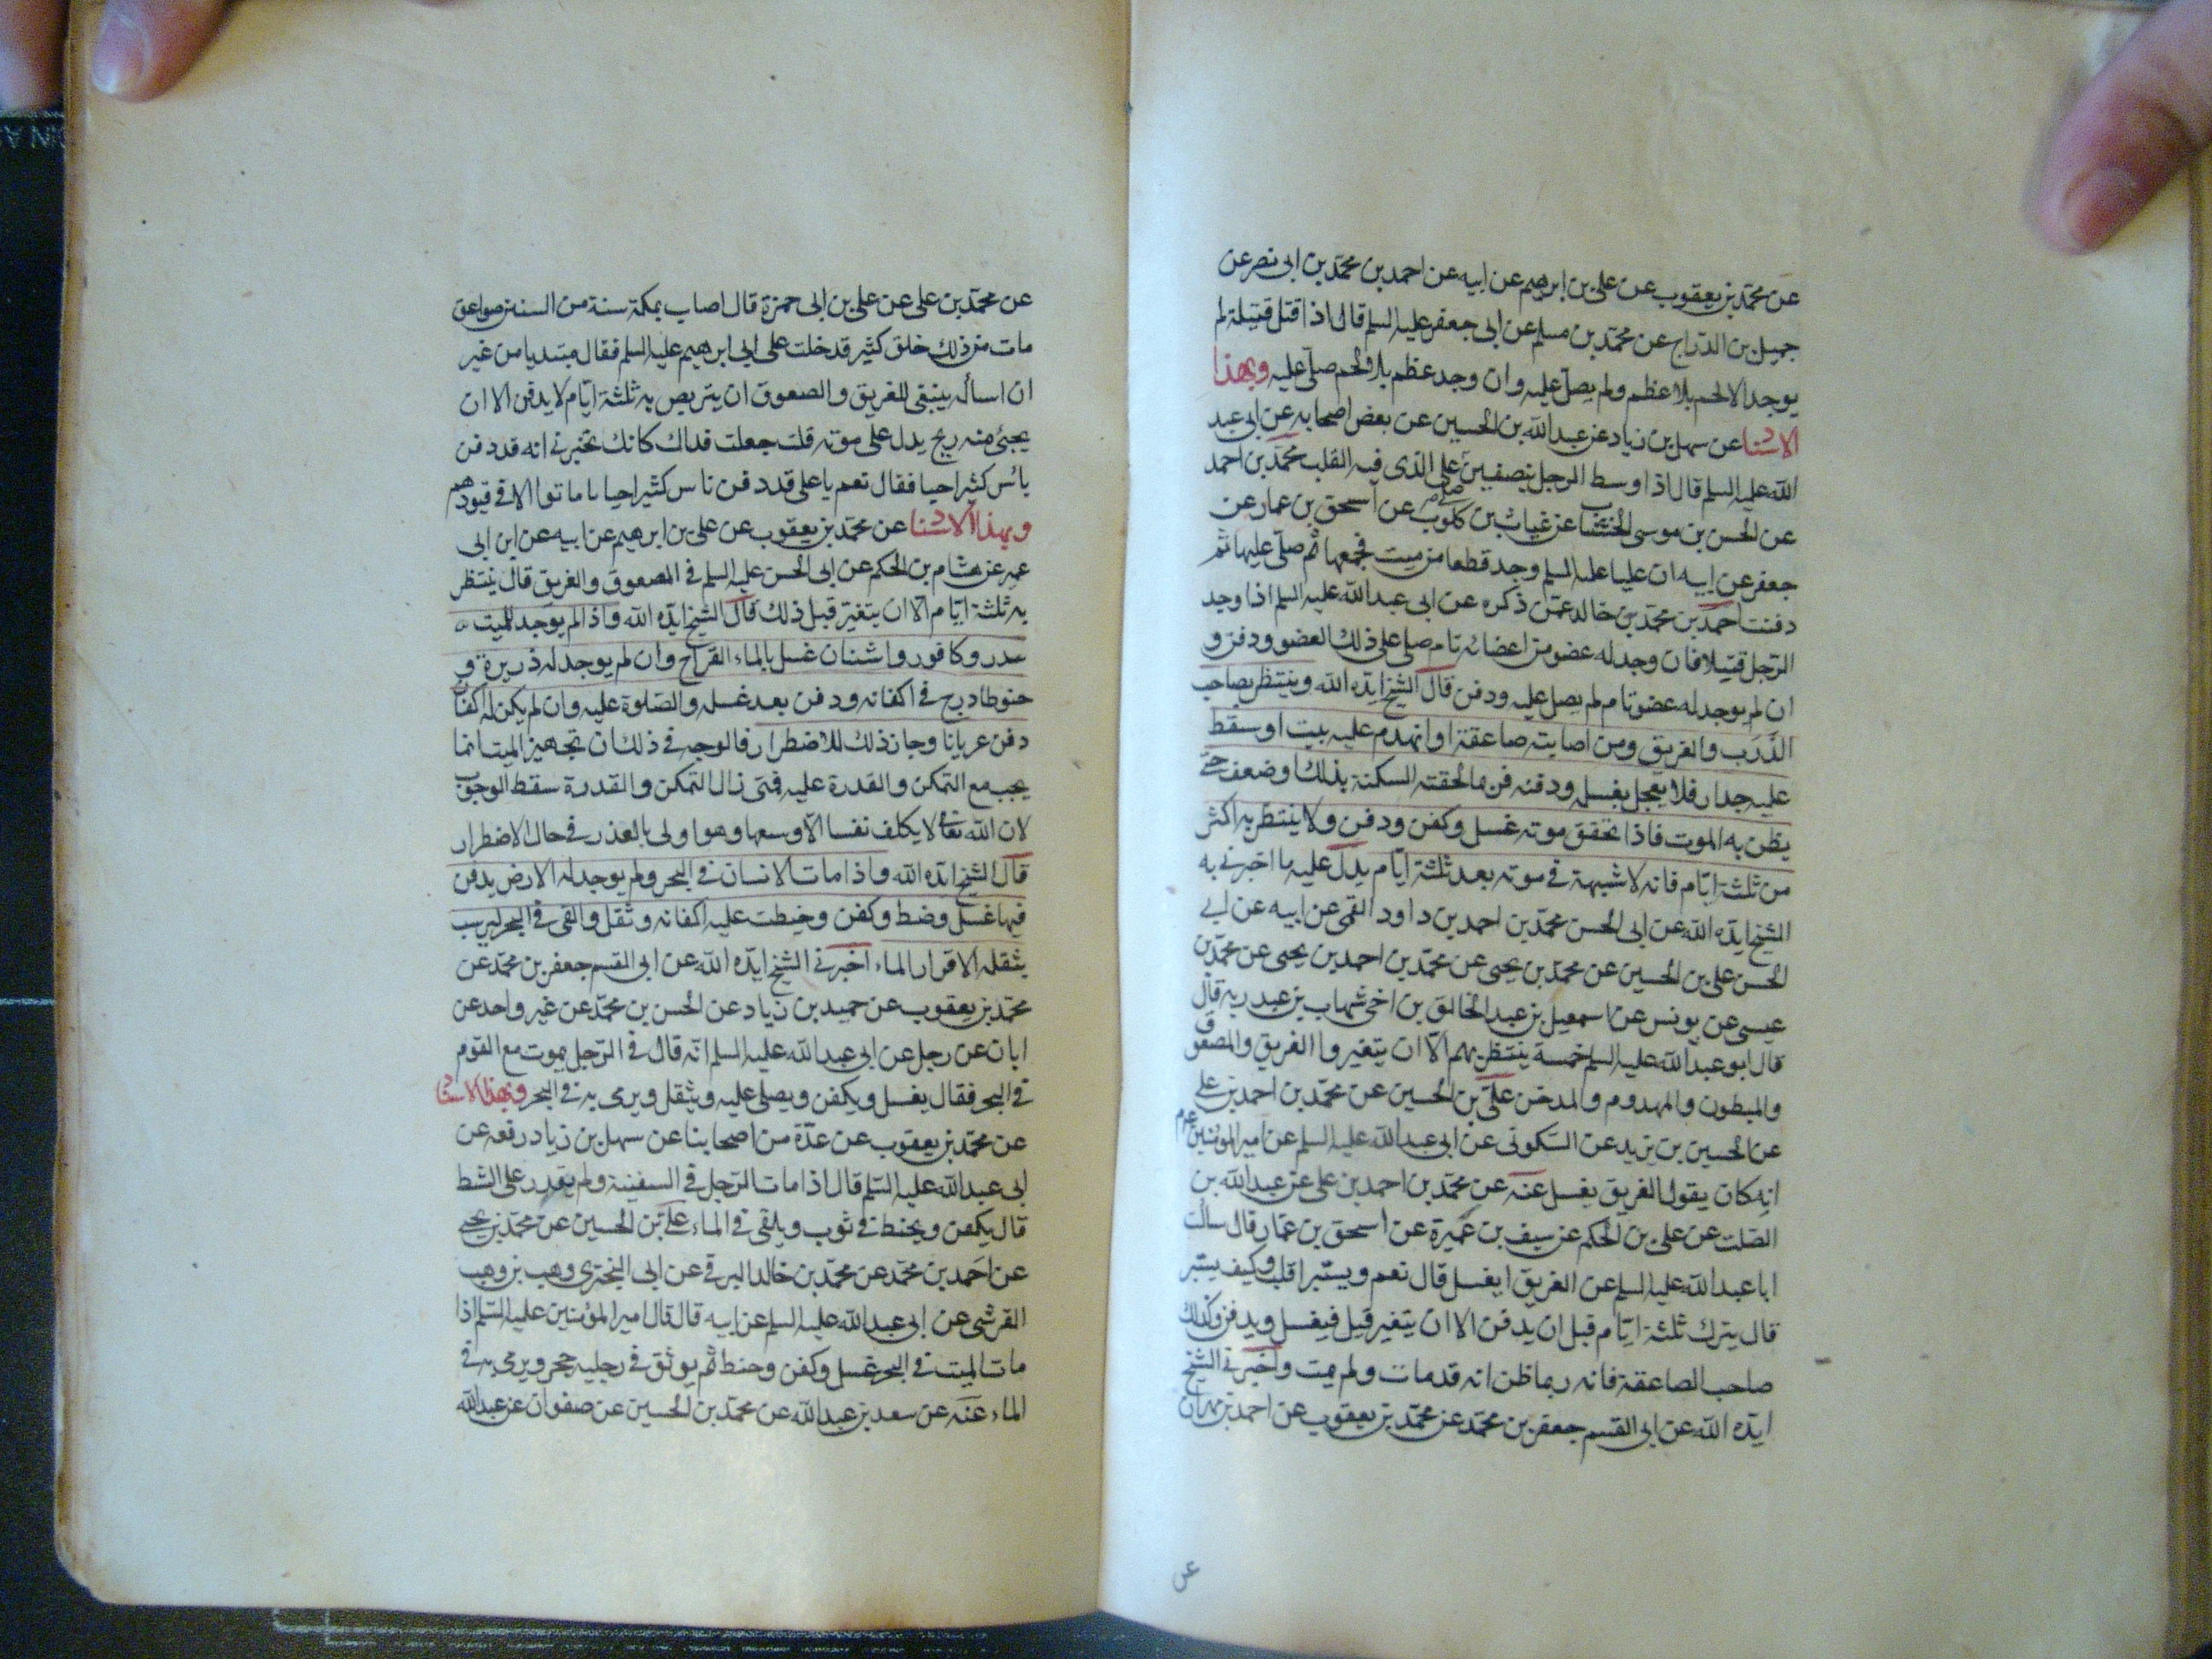 عن محمد بن يعقوب عن علي بن ابرهيم عن ابيه عن احمد بن محمد بن ابى نصر عن
جميل بن الدراج عن محمد بن مسلم عن ابى جعفر عليه السلم قال اذا قتل قتيلا لم
يوجد الا لحم بلا عظم ولم يصل عليه وان وجد عظم بلا لحم صلى عليه وبهذا
الاسنا عن سهل بن زياد عن عبد الله بن الحسين عن بعض اصحابه عن ابى عبد
الله عليه السلم قال اذا وسط الرجل بنصفين صلى على الذى فيه القلب محمد بن احمد
عن الحسن بن موسى الخشاب عن غياث بن كلوب عن اسحق بن عمار عن
جعفر عن ابيه ان عليا عليه السلم وجد قطعا من ميت فجمعها ثم صلى عليها ثم
دفنت احمد بن محمد بن خالد عمن ذكره عن ابى عبد الله عليه السلم اذا وجد
الرجل قتيلا فان وجد له عضو من اعضائه تام صلى على ذلك العضو ودفن و
ان لم يوجد له عضو تام لم يصل عليه ودفن قال الشيخ ايده الله وينتظر بصاحب
الذرب والغريق ومن اصابته صاعقة او انهدم عليه بيت او سقط
عليه جدار فلا يعجل بغسله ودفنه فربما لحقته السكتة بذلك او ضعف حتى
يظن به الموت فاذا تحقق موته غسل وكفن ودفن ولا ينتظر به اكثر
من ثلثة ايام فانه لا شبهة في موته بعد ثلثة ايام يدل عليه ما اخبرنى به
الشيخ ايده الله عن ابى الحسن محمد بن احمد بن داود القمى عن ابيه عن ابى
الحسن على بن الحسين عن محمد بن يحيى عن محمد بن احمد بن يحيى عن محمد بن
عيسى عن يونس عن اسمعيل بن عبد الخالق بن اخى شهاب بن عبد ربه قال
قال ابو عبد الله عليه السلم خمسة ينتظر بهم الا ان يتغيروا الغريق والمصعوق
والمبطون والمهدوم والمدخن على بن الحسين عن محمد بن احمد بن على
عن الحسين بن يزيد عن السكونى عن ابى عبد الله عليه السلم عن امير المؤمنين عم
انه كان يقول الغريق يغسل عنه عن محمد بن احمد بن على عن عبد الله بن
الصلت عن على بن الحكم عن سيف بن عميرة عن اسحق بن عمار قال سالت
ابا عبد الله عليه السلم عن الغريق ايغسل قال نعم ويستبرا قلت وكيف يستبر
قال يترك ثلثة ايام قبل ان يدفن الا ان يتغير قبل فيغسل ويدفن وكذلك
صاحب الصاعقة فانه ربما ظن انه قد مات ولم يمت واخبرنى الشيخ
ايده الله عن ابى القسم جعفر بن محمد عن محمد بن يعقوب عن احمد بن مهران
عن
عن محمد بن على عن على بن ابى حمزة قال اصاب بمكة سنة من السنين صواعق
مات من ذلك خلق كثير فدخلت على ابى ابرهيم عليه السلم فقال مبتديا من غير
ان اساله ينبغى للغريق والصعوق ان يتربص به ثلثة ايام لا يدفن الا ان
يجئ منه ريح يدل على موته قلت جعلت فداك كانك تخبرنى انه قد دفن
ناس كثير احيا فقال نعم يا على قد دفن ناس كثير احيا ما ماتوا الا فى قبورهم
وبهذا الاسنا عن محمد بن يعقوب عن على بن ابرهيم عن ابيه عن ابن ابى
عمير عن هشام بن الحكم عن ابى الحسن عليه السلم فى المصعوق والغريق قال ينتظر
به ثلثة ايام الا ان يتغير قبل ذلك قال الشيخ ايده الله واذا لم يوجد للميت
سدر وكافور واشنان غسل بالماء القراح وان لم يوجد له ذريرة و
حنوط ادرج فى اكفانه ودفن بعد غسله والصلوة عليه وان لم يكن له اكفان
دفن عريانا وجاز ذلك للاضطرار فالوجه فى ذلك ان تجهيز الميت انما
يجب مع التمكن والقدرة عليه فمتى زال التمكن والقدرة سقط الوجوب
لان الله تعالى لا يكلف نفسا الا وسعها وهو اولى بالعذر فى حال الاضطرار
قال الشيخ ايده الله واذا مات الانسان فى البحر ولم يوجد له الارض يدفن
فيها غسل وحنط وكفن وخيطت عليه اكفانه وثقل والقى فى البحر ليرسب
بثقله الا قرار الماء اخبرنى الشيخ ايده الله عن ابى القسم جعفر بن محمد عن
محمد بن يعقوب عن حميد بن زياد عن الحسن بن محمد عن غير واحد عن
ابان عن رجل عن ابى عبد الله عليه السلم انه قال فى الرجل يموت مع القوم
فى البحر فقال يغسل ويكفن ويصلى عليه ويثقل ويرمى به فى البحر وبهذا الاسنا
عن محمد بن يعقوب عن عدة من اصحابنا عن سهل بن زياد رفعه عن
ابى عبد الله عليه السلم قال اذا مات الرجل فى السفينة ولم يقدر على الشط
قال يكفن ويحنط فى ثوب ويلقى فى الماء على بن الحسين عن محمد بن يحيى
عن احمد بن محمد عن محمد بن خالد البرقى عن ابى البخترى وهب بن وهب
القرشى عن ابى عبد الله عليه السلم عن ابيه قال قال امير المؤمنين عليه السلم اذا
مات الميت فى البحر غسل وكفن وحنط ثم يوثق فى رجليه حجر ويرمى به فى
الماء عنه عن سعد بن عبد الله عن محمد بن الحسين عن صفوان عن عبد الله